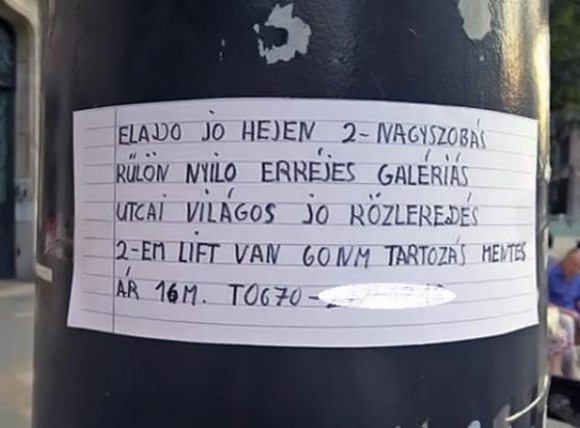 ELADDO JO HEJEN 2-NAGYSZOBÁS
RÜLÖN NYILO ERRÉJES GALÉRIÁS
UTCAI VILÁGOS JO RÖZLEREDÉS
2-EM LIFT VAN 60NM TARTOZÁS MENTES
ÁR 16M. TO670-